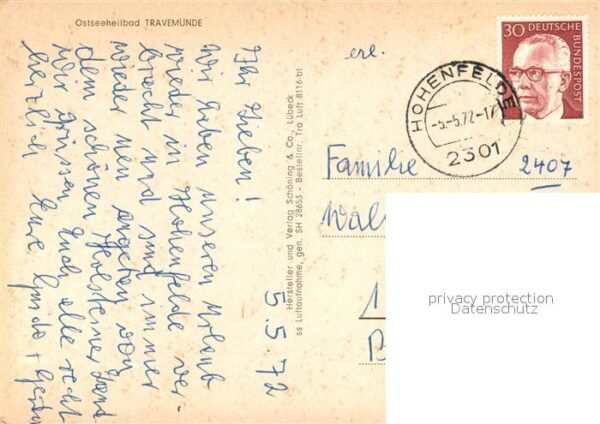 Ostseeheilbad TRAVEMÜNDE
5.5.72
Ihr Lieben!
Wir haben unseren Urlaub
wieder in Hohenfelde ver-
bracht und sind immer
wieder neu angetan von
dem schönen Holsteiner Land.
Wir grüssen Euch alle recht
herzlich Eure
Hersteller und Verlag Schöning & Co., Lübeck
ss Luftaufnahme, gen. SH 28653 - Bestellnr. Tra Luft 8116-bt
30 DEUTSCHE BUNDESPOST
HOHENFELDE
-5.-5.72-17
2301
Familie 2407
privacy protection
Datenschutz